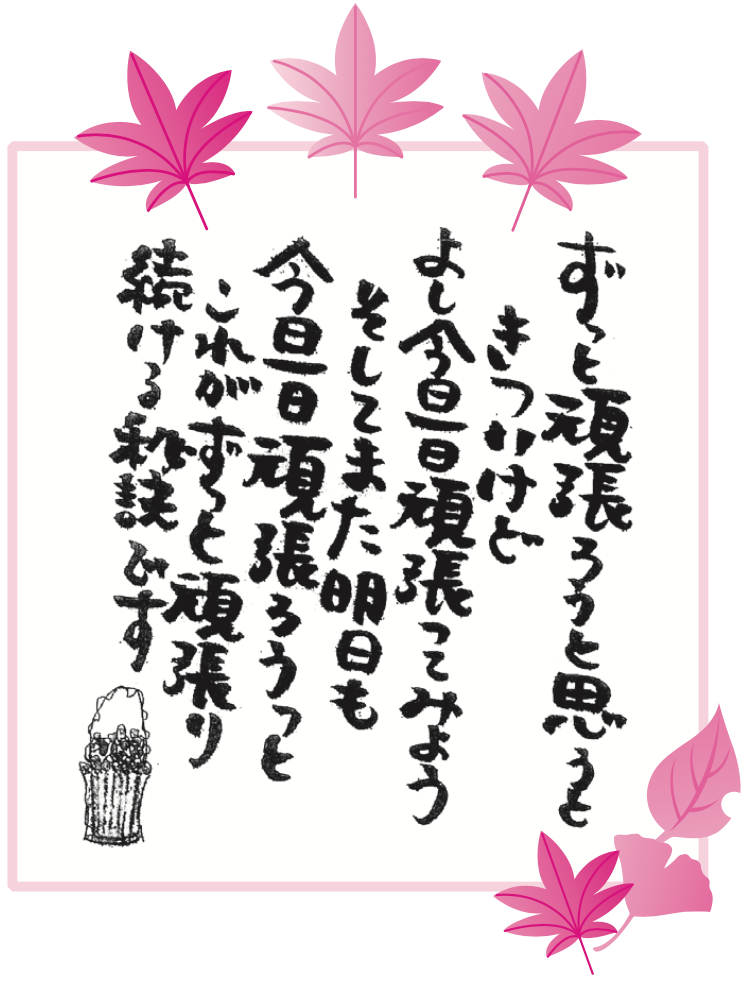 ずっと頑張ろうと思うと
きついけど
よし今日一日頑張ってみよう
そしてまた明日も
今日一日頑張ろうっと
これがずっと頑張り
続ける秘訣です